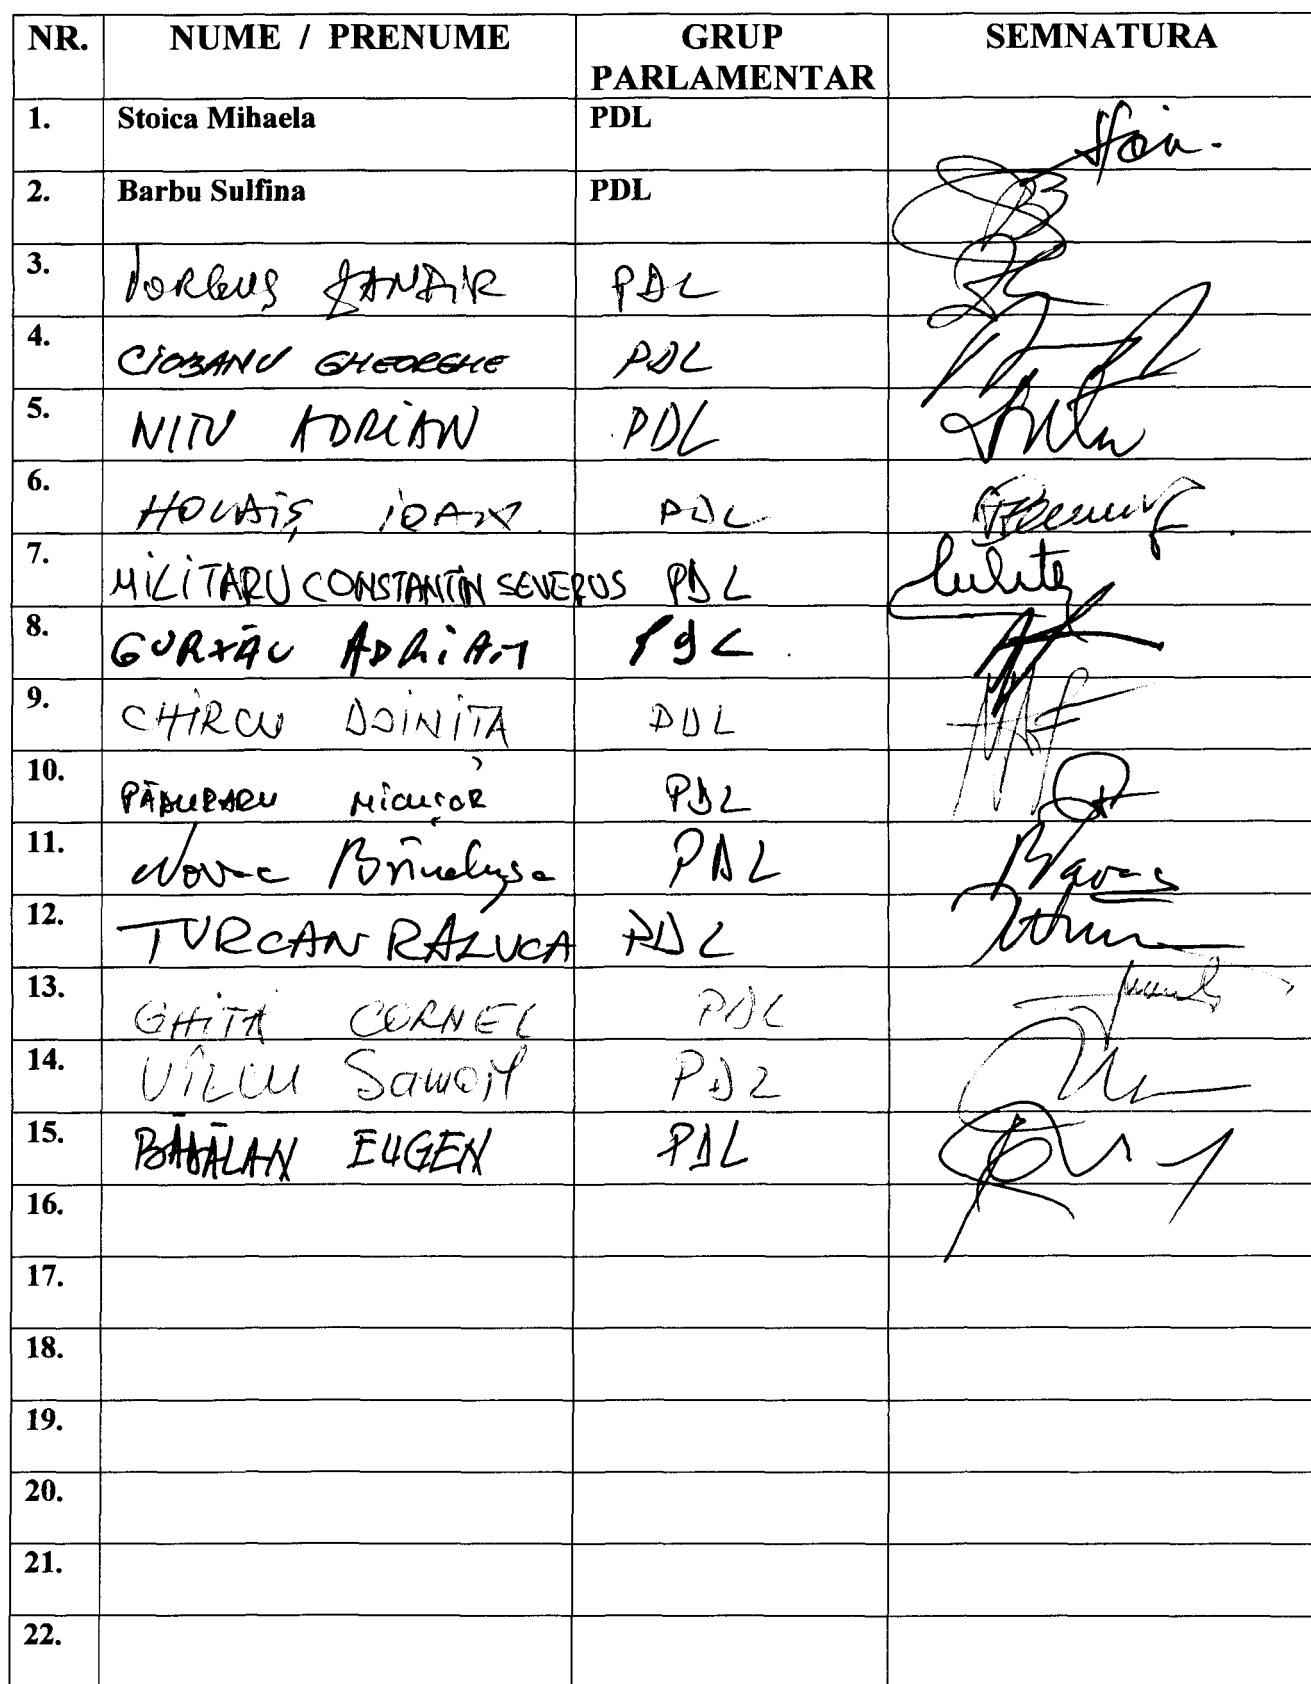 NR. NUME / PRENUME GRUP PARLAMENTAR SEMNATURA
1. Stoica Mihaela PDL
2. Barbu Sulfina PDL
3. PDL
4. CIOBANU GHEORGHE PDL
5. NIȚU ADRIAN PDL
6. HOLBAN IOAN PDL
7. MILITARU CONSTANTIN SEVERUS PDL
8. GURZĂU ADRIAN PDL
9. CHIRCU DOINIȚA PDL
10. PĂDURARU NICUȘOR PDL
11. Novac PDL
12. TURCAN RALUCA PDL
13. GHIȚĂ CORNEL PDL
14. VÎLCU Samoil PDL
15. BĂDĂLAN EUGEN PDL
16.
17.
18.
19.
20.
21.
22.